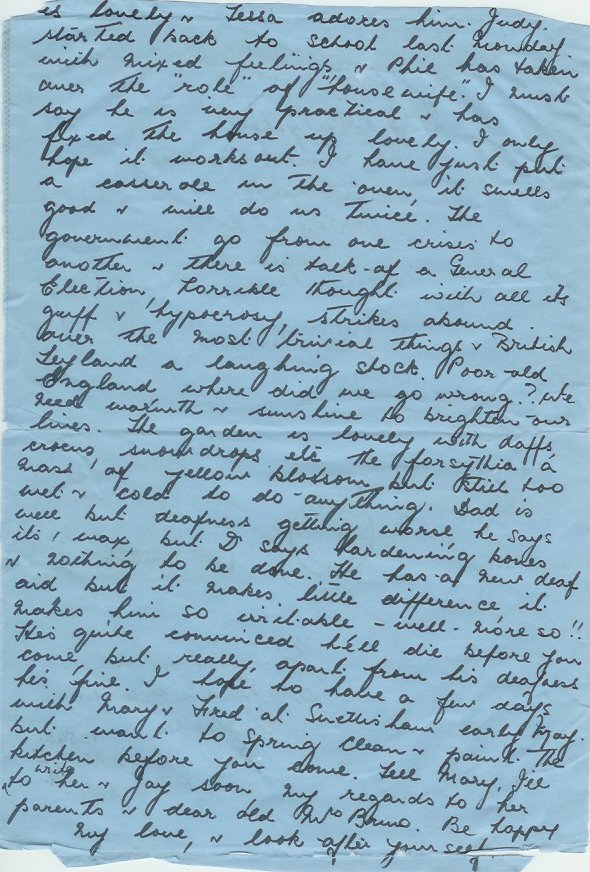 is lovely & Tessa adores him. Judy.
started back to school last Monday
with mixed feelings & Phil has taken
over the "role" of "housewife". I must
say he is very practical & has
fixed the house up lovely. I only
hope it works out. I have just put
a casserole in the oven, it smells
good & will do us twice. The
government go from one crises to
another & there is talk of a General
Election, horrible thought with all its
guff & hypocrosy, strikes abound
over the most trivial things & British
Leyland a laughing stock. Poor old
England where did we go wrong? We
need warmth & sunshine to brighten our
lives. The garden is lovely with daffs,
crocus, snowdrops etc the forsythia a
mass of yellow blossom but still too
wet & cold to do anything. Dad is
well but deafness getting worse he says
it's wax, but D says hardening bones
& nothing to be done. He has a new deaf
aid but it makes little difference it
makes him so irritable - well. more so!!
He's quite convinced he'll die before you
come but really apart from his deafness
he's fine. I hope to have a few days
with Mary & Fred at early May.
but want to spring clean & paint the
kitchen before you come. Tell Mary, I'll
write
to her & Jay soon my regards to her
parents & dear old Mrs Bruno. Be happy
my love, & look after yourself.